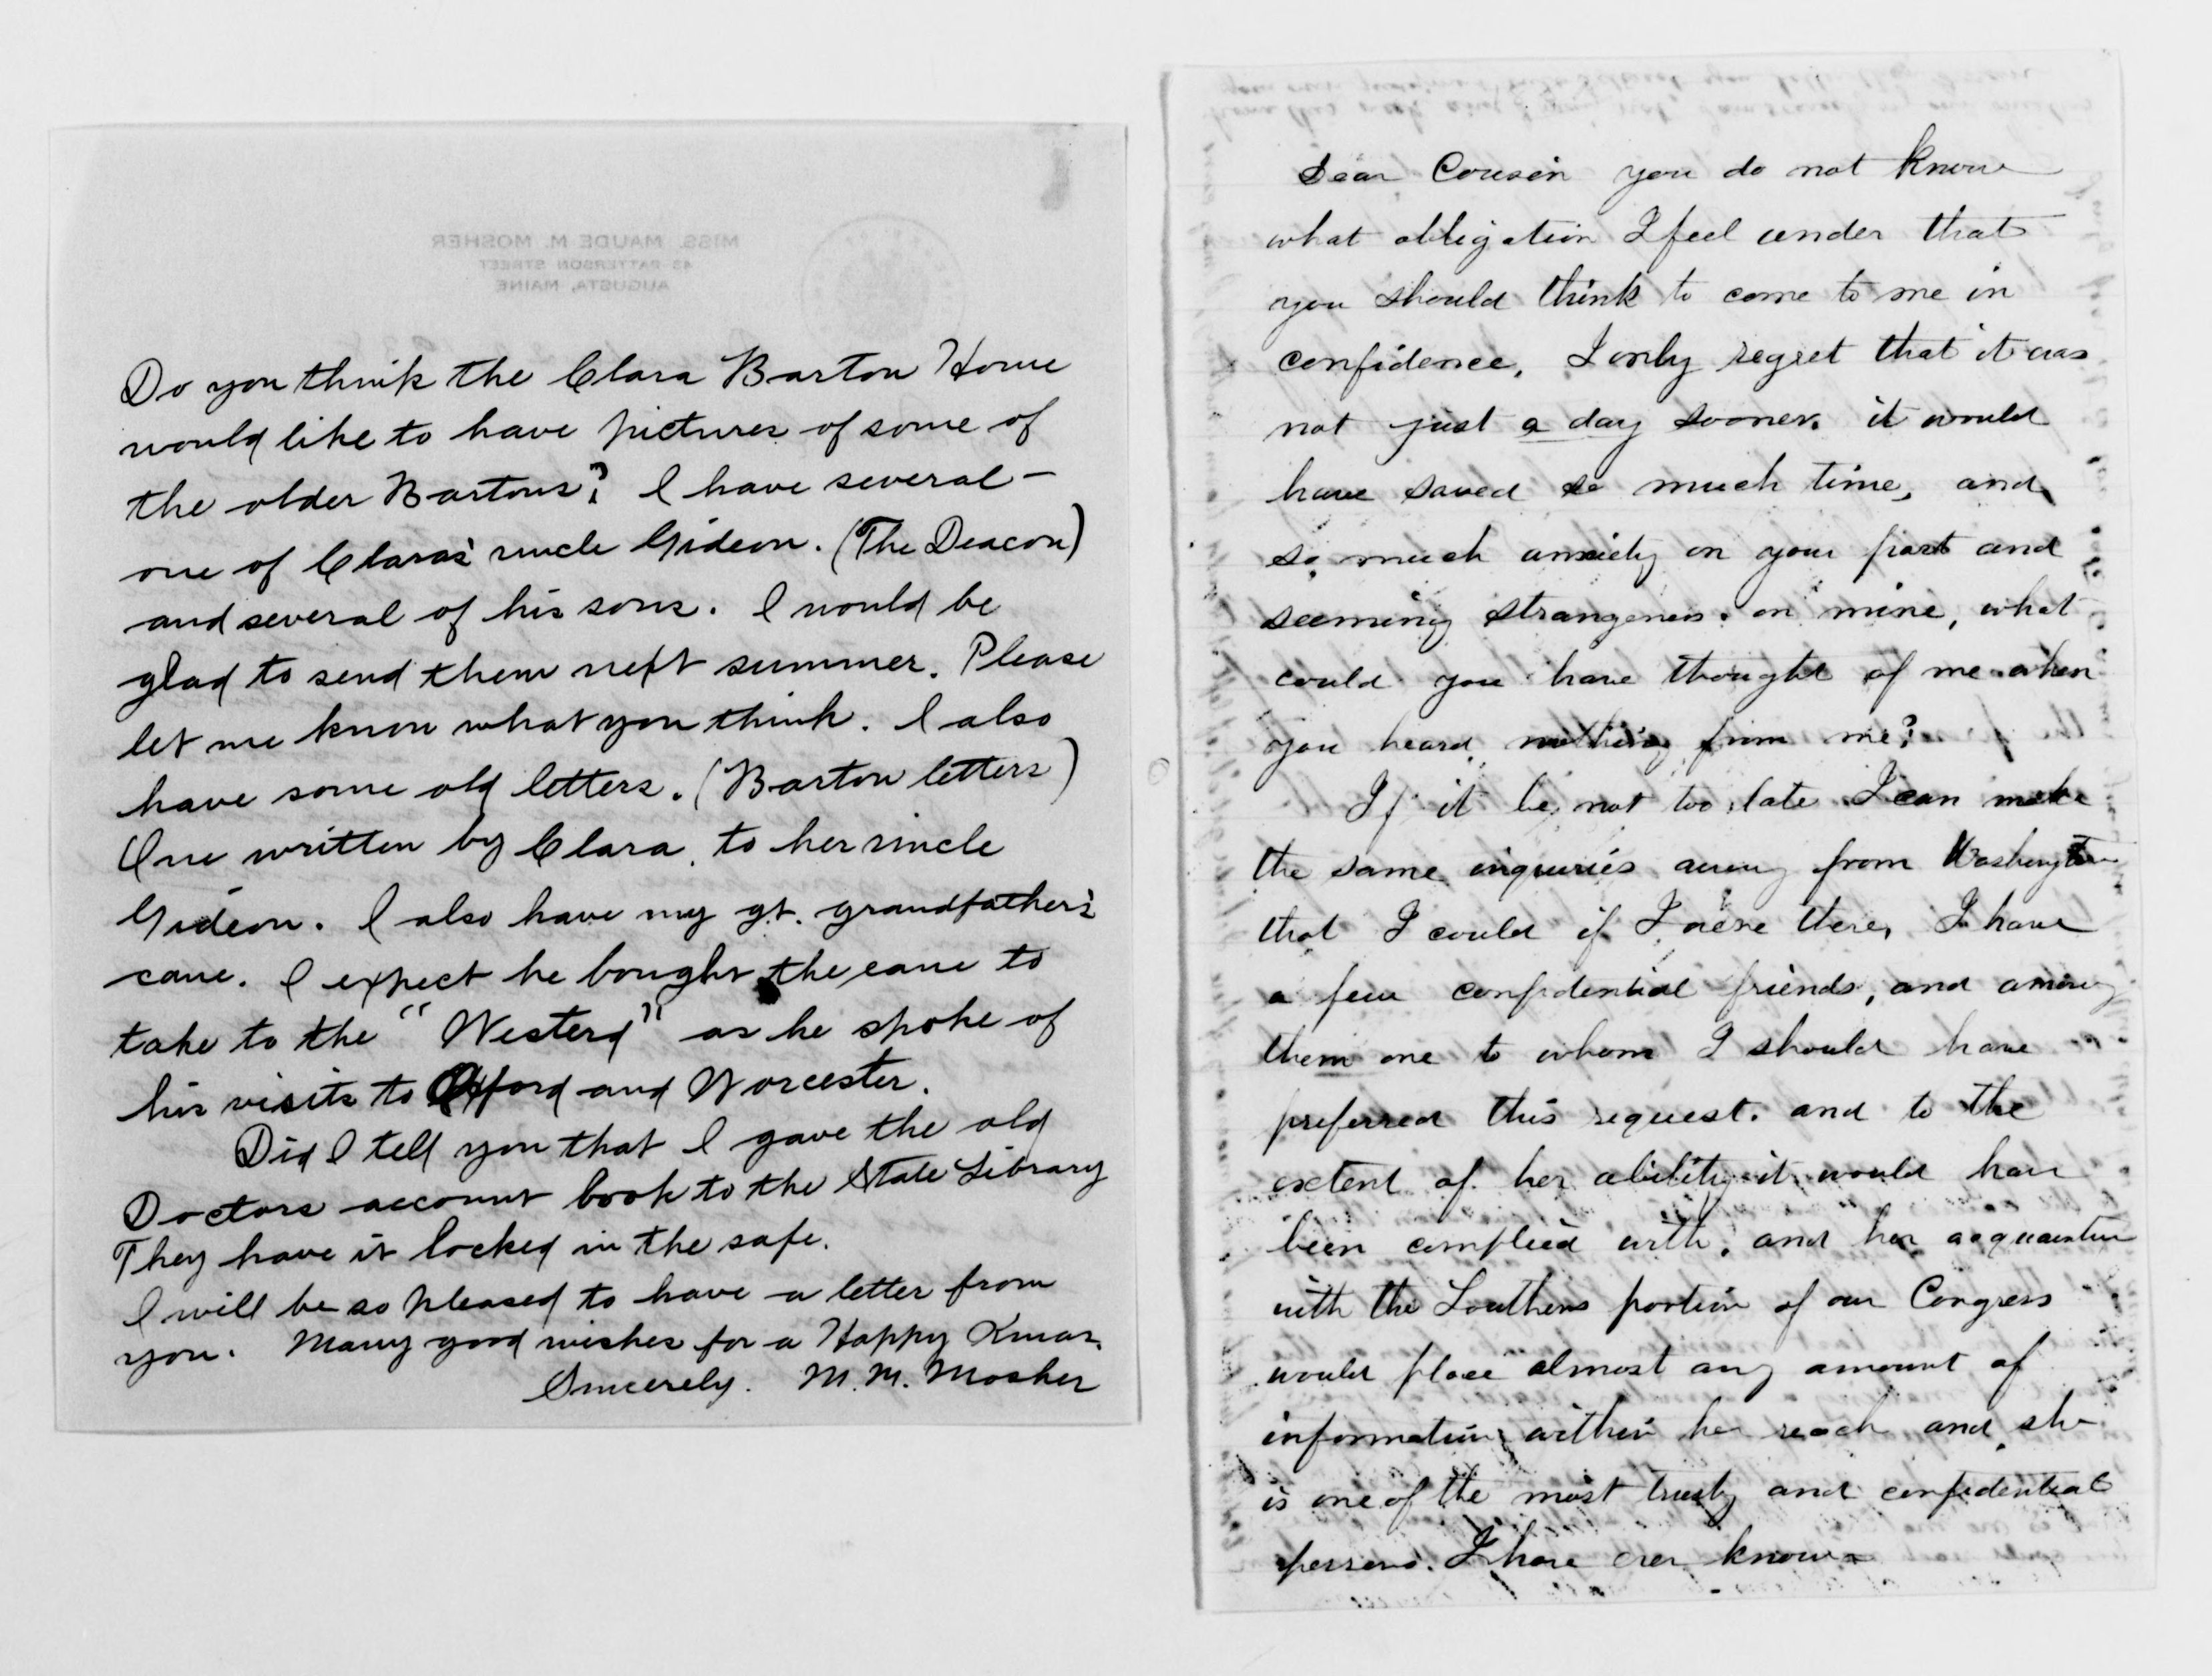 MISS. MAUDE M. MOSHER
43 PATTERSON STREET
AUGUSTA, MAINE
Do you think the Clara Barton Home
would like to have pictures of some of
the older Bartons? I have several –
one of Clara's uncle Gideon. (The Deacon)
and several of his sons. I would be
glad to send them next summer. Please
let me know what you think. I also
have some old letters. (Barton letters)
One written by Clara, to her uncle
Gideon. I also have my gt. grandfather's
cane. I expect he bought the cane to
take to the "Westerd" as he spoke of
his visits to Oxford and Worcester.
Did I tell you that I gave the old
Doctors account book to the State Library
They have it locked in the safe.
I will be so pleased to have a letter from
you. Many good wishes for a Happy Xmas.
Sincerely. M. M. Mosher
Dear Cousin you do not know
what obligation I feel under that
you should think to come to me in
confidence, I only regret that it was
not just a day sooner. it would
have saved so much time, and
so much anxiety on your part and
seeming strangeness on mine, what
could you have thought of me when
you heard nothing from me?
If it be not too late I can make
the same inquiries away from Washington
that I could if I were there, I have
a few confidential friends, and among
them one to whom I should have
preferred this request. and to the
extent of her ability it would have
been complied with, and her acquaintance
with the Southern portion of our Congress
would place almost any amount of
information within her reach and she
is one of the most trusty and confidential
persons. I have ever known